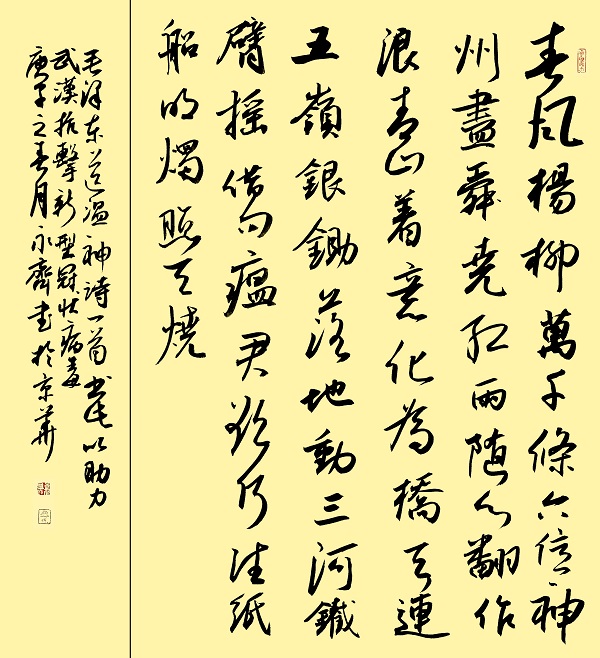 春风楊柳萬千條六億神
州盡舜堯红雨随心翻作
浪青山着意化為橋天連
五嶺銀鋤落地動三河鐵
臂摇借问瘟君欲何往紙
船明燭照天燒
毛泽东送瘟神詩一首书此以助力
武漢抗擊新型冠状病毒
庚子之春月永齊书於京華